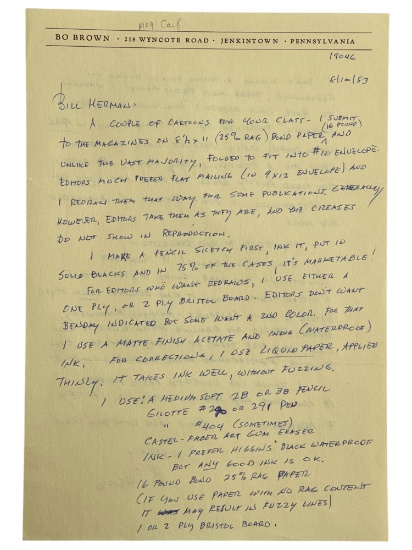 Mag Cart
BO BROWN • 218 WYNCOTE ROAD • JENKINTOWN • PENNSYLVANIA
19046
BILL HERMAN:
A COUPLE OF CARTOONS FOR YOUR CLASS - I SUBMIT
(16 POUND)
TO THE MAGAZINES ON 8½ x 11 (25% RAG) BOND PAPER, AND
UNLIKE THE VAST MAJORITY, FOLDED TO FIT INTO #10 ENVELOPE.
EDITORS MUCH PREFER FLAT MAILING (IN 9x12 ENVELOPE) AND
I REDRAW THEM THAT WAY FOR SOME PUBLICATIONS, GENERALLY
HOWEVER, EDITORS TAKE THEM AS THEY ARE, AND THE CREASES
DO NOT SHOW IN REPRODUCTION.
I MAKE A PENCIL SKETCH FIRST, INK IT, PUT IN
SOLID BLACKS AND IN 75% OF THE CASES, IT'S MARKETABLE!
FOR EDITORS WHO WANT REDRAWS, I USE EITHER A
ONE PLY, OR 2 PLY BRISTOL BOARD. EDITORS DON'T WANT
BENDAY INDICATED BUT SOME WANT A 2ND COLOR. FOR THAT
I USE A MATTE FINISH ACETATE AND INDIA (WATERPROOF)
INK. FOR CORRECTIONS, I USE LIQUID PAPER, APPLIED
THINLY. IT TAKES INK WELL, WITHOUT FUZZING.
I USE: A MEDIUM SOFT 2B OR 3B PENCIL
GILOTTE #290 OR 291 PEN
" #404 (SOMETIMES)
CASTEL-FABER ART GUM ERASER
INK - I PREFER HIGGINS' BLACK WATERPROOF
BUT ANY GOOD INK IS O.K.
16 POUND BOND 25% RAG PAPER
(IF YOU USE PAPER WITH NO RAG CONTENT
IT MAY RESULT IN FUZZY LINES)
1 OR 2 PLY BRISTOL BOARD.